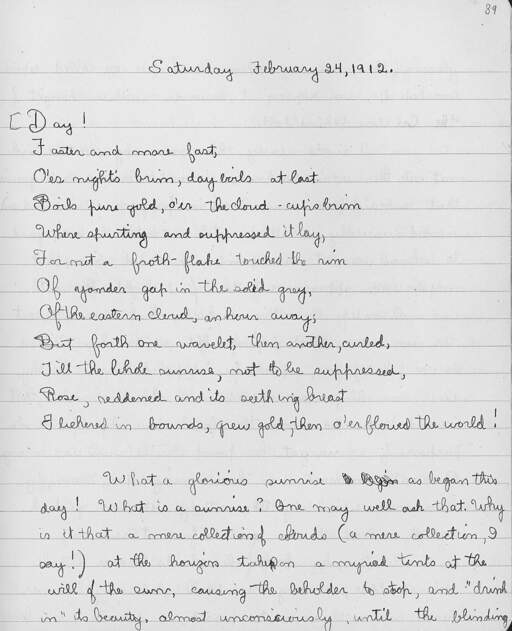 39
Saturday February 24, 1912.
[Day!
Faster and more fast,
O'er night's brim, day boils at last
Boils pure gold, o'er the cloud-cup's brim
Where spurting and suppressed it lay,
For not a froth-flake touched the rim
Of yonder gap in the solid grey,
Of the eastern cloud, an hour away;
But forth one wavelet, then another, curled,
Till the whole sunrise, not to be suppressed,
Rose, reddened and its seething breast
Flickered in bounds, grew gold, then o'erflowed the world!
What a glorious sunrise as began this
day! What is a sunrise? One may well ask that. Why
is it that a mere collection of clouds (a mere collection, I
say!) at the horizon takes on a myriad tints at the
will of the sun, causing the beholder to stop, and "drink
in" its beauty, almost unconsciously, until the blinding